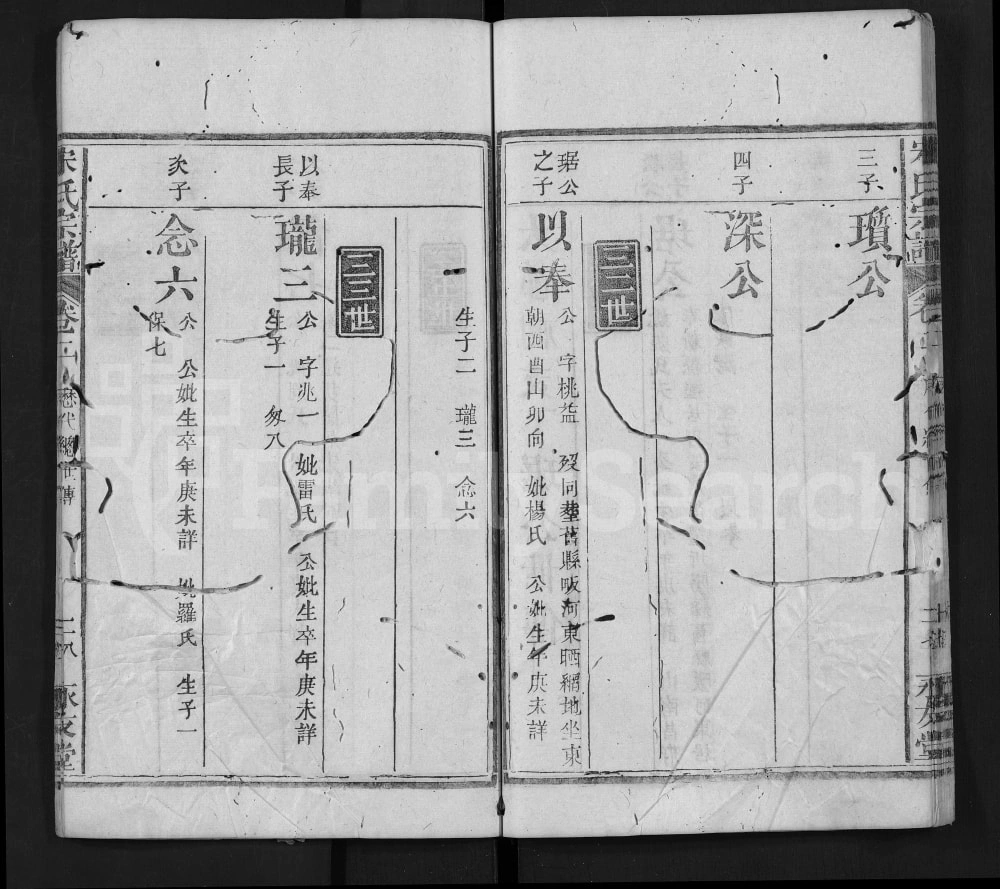 三子
瓊公
四子
深公
二三世
琚公
之子
以奉
公 字桃益 歿同塟舊縣畈河東晒網地坐東
朝西酉山卯向 妣楊氏 公妣生年庚未詳
生子二 瓏三 念六
三三世
以奉
長子
瓏三
公 字兆一 妣雷氏 公妣生卒年庚未詳
生子一 匆八
次子
念六
公 公妣生卒年庚未詳 妣羅氏 生子一
保七
宋氏宗譜
歷代總世傳
二八